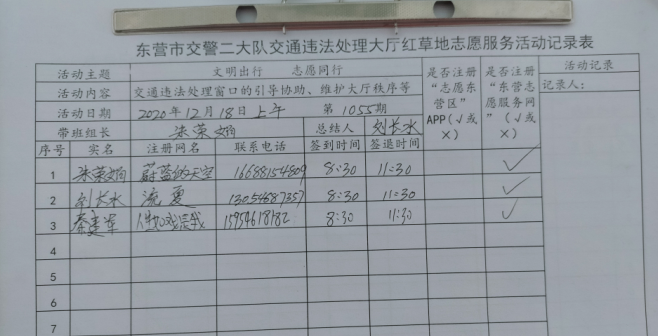 东营市交警二大队交通违法处理大厅红草地志愿服务活动记录表
活动主题 文明出行 志愿同行 是否注册“志愿东营区”APP(√或×) 是否注册“东营志愿服务网”(√或×) 活动记录
活动内容 交通违法处理窗口的引导协助、维护大厅秩序等 记录人:
活动日期 2020年12月18日上午 第1055期
带班组长 总结人 刘长水
序号 实名 注册网名 联系电话 签到时间 签退时间
1 蔚蓝的天空 16688154809 8:30 11:30 √
2 刘长水 流夏 13054687357 8:30 11:30 √
3 秦建军 15954618182 8:30 11:30 √
4
5
6
7